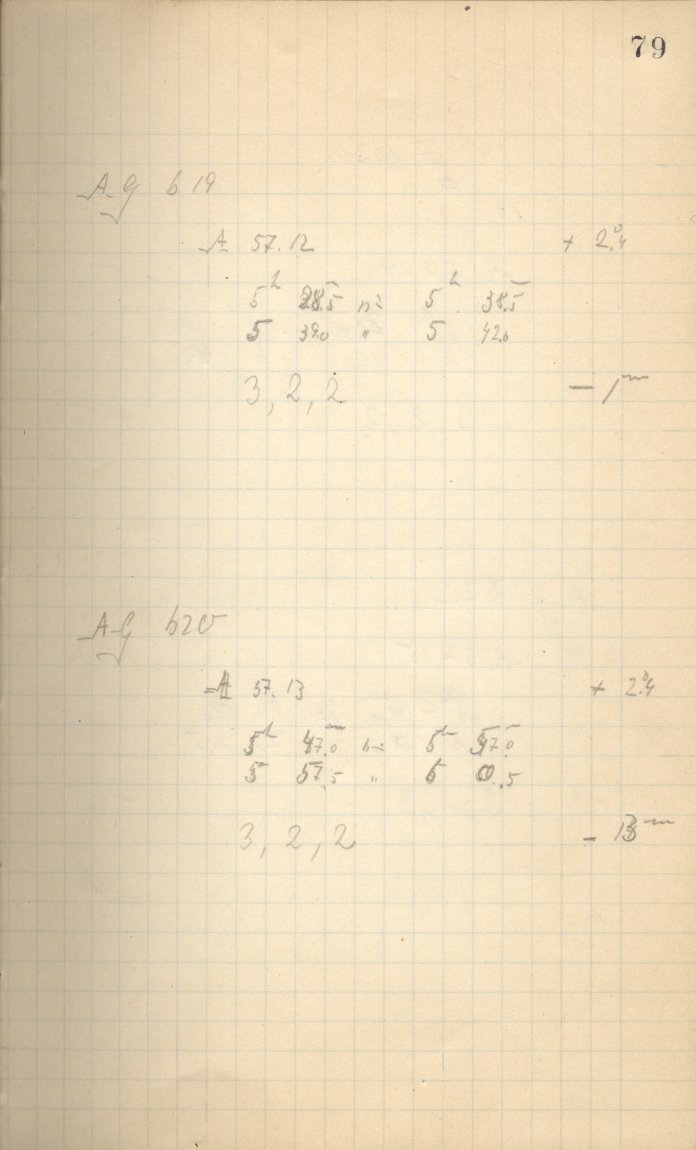 79
AG 619
A 57.12 + 2°.4
5h 28m.5 bis 5h 38m.5
5 39.0 " 5 42.0
3, 2, 2 - 1m
AG 620
A 57.13 + 2°.4
5h 47m.0 bis 5h 57m.0
5 57.5 " 6 0.5
3, 2, 2 - 13m